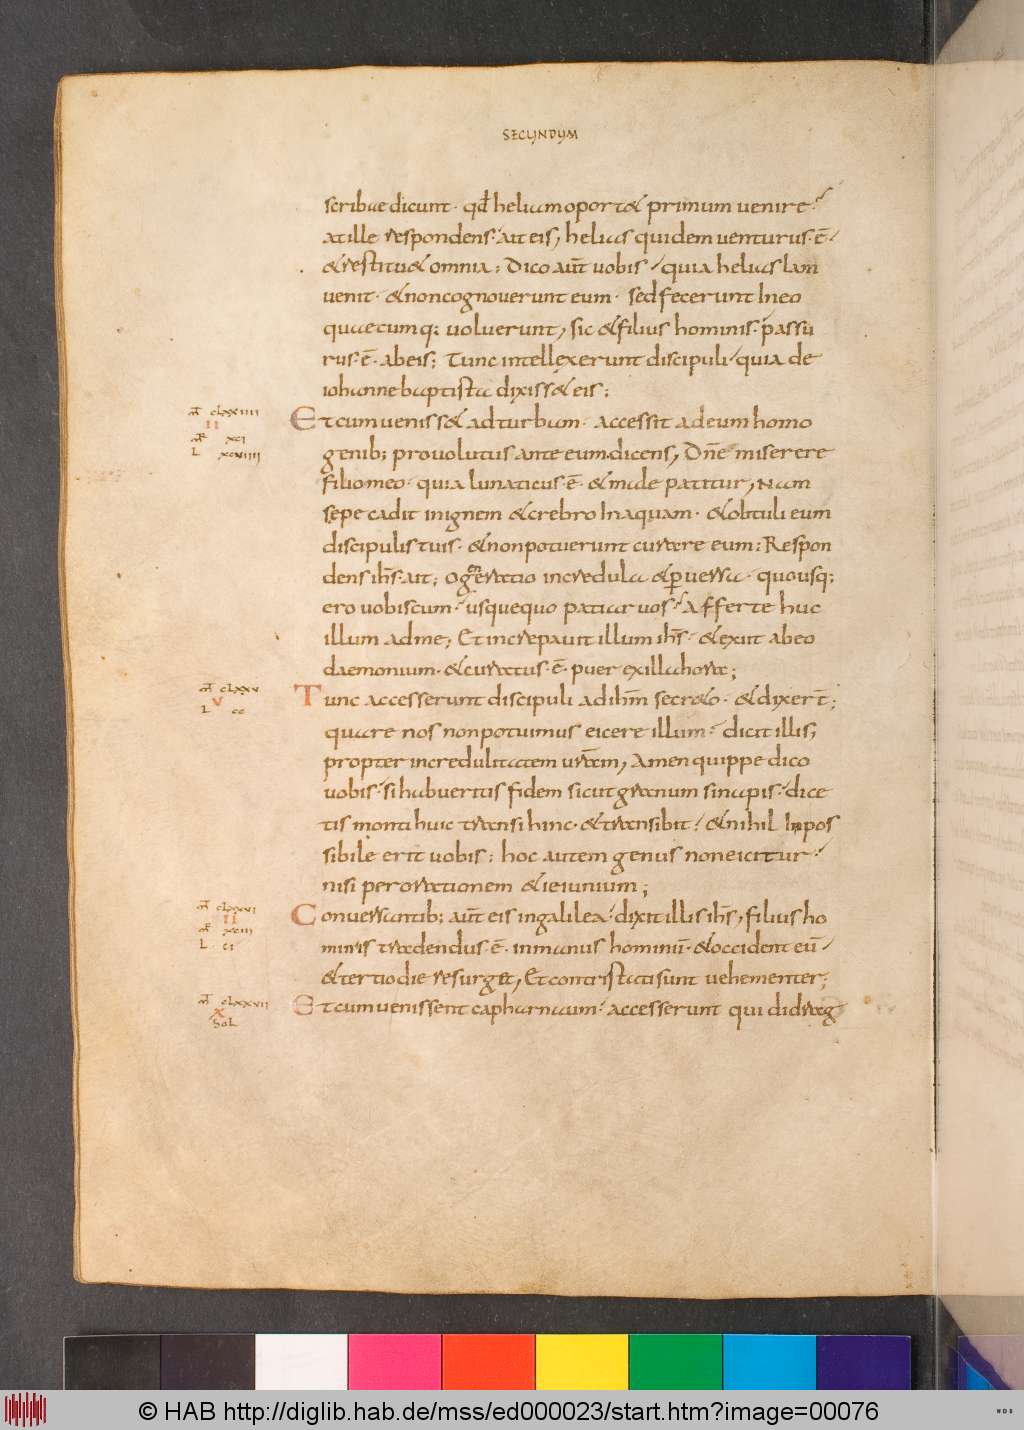 SECUNDUM
scribae dicunt · qđ heliam oport& primum venire?
at ille respondens · ait eis, helias quidem venturus · ē ·
& restitu& omnia : Dico aut̄ vobis · quia helias iam
venit · & non cognoverunt eum · sed fecerunt in eo
quaecumq; voluerunt, sic & filius hominis · passu
rus · ē · ab eis; Tunc intellexerunt discipuli · quia de
iohanne baptista dixiss& eis;
Et cum veniss& ad turbam · accessit ad eum homo
genib; provolutus ante eum · dicens, Dn̄e miserere
filio meo · quia lunaticus · ē · & male patitur, Nam
sepe cadit in ignem & crebro in aquam · & obtuli eum
discipulis tuis · & non potuerunt curare eum : Respon
dens ih̄s · ait; o generatio incredula & perversa · quousq;
ero vobiscum · usquequo patiar vos · Afferte huc
illum ad me; Et increpavit illum ih̄s · & exiit ab eo
daemonium · & curatus · ē · puer ex illa hora;
Tunc accesserunt discipuli ad ih̄m secr&o · & dixer̄t;
quare nos non potuimus eicere illum · dicit illis;
propter incredulitatem vr̄am, Amen quippe dico
vobis · si habueritis fidem sicut granum sinapis · dice
tis monti huic transi hinc · & transibit · & nihil inpos
sibile erit vobis : hoc autem genus non eicitur ·
nisi per orationem & ieiunium;
Conversantib; aut̄ eis in galilea · dixit illis ih̄s, filius ho
minis tradendus · ē · in manus hominū · & occident eū ·
& tertio die resurg&, Et contristati sunt vehementer;
Et cum venissent capharnaum · accesserunt qui didrag
m̄ clxxiiii
II
m̄r xci
L xcviiii
m̄ clxxv
V
L cc
m̄ clxxvi
II
m̄r xciii
L · ci
m̄ clxxvii
X
Sol
© HAB http://diglib.hab.de/mss/ed000023/start.htm?image=00076